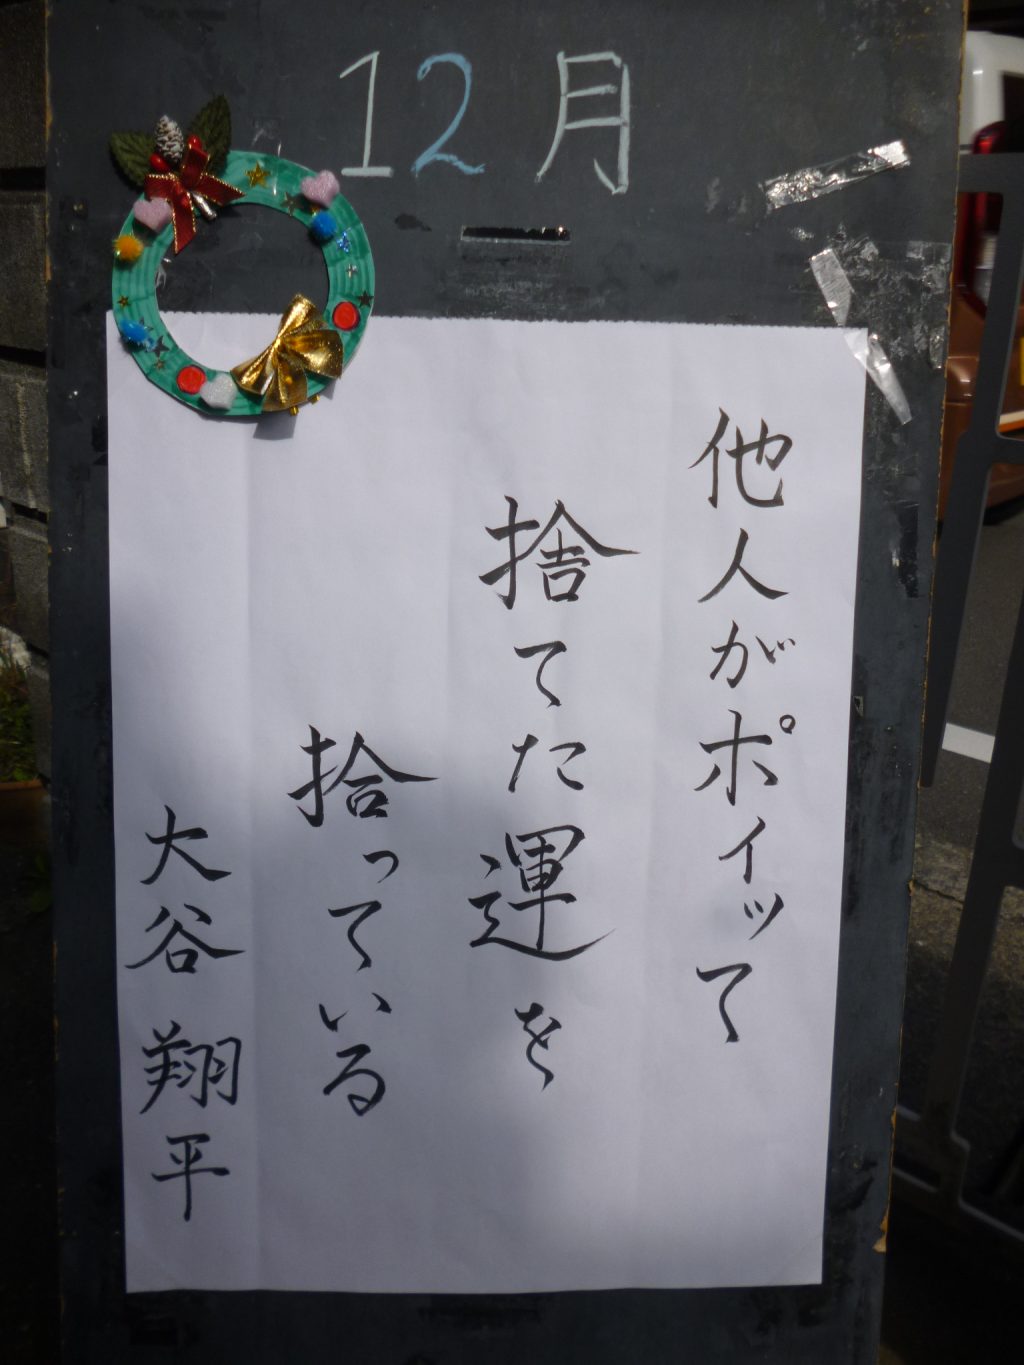 12月
他人がポイッて
捨てた運を
拾っている
大谷翔平